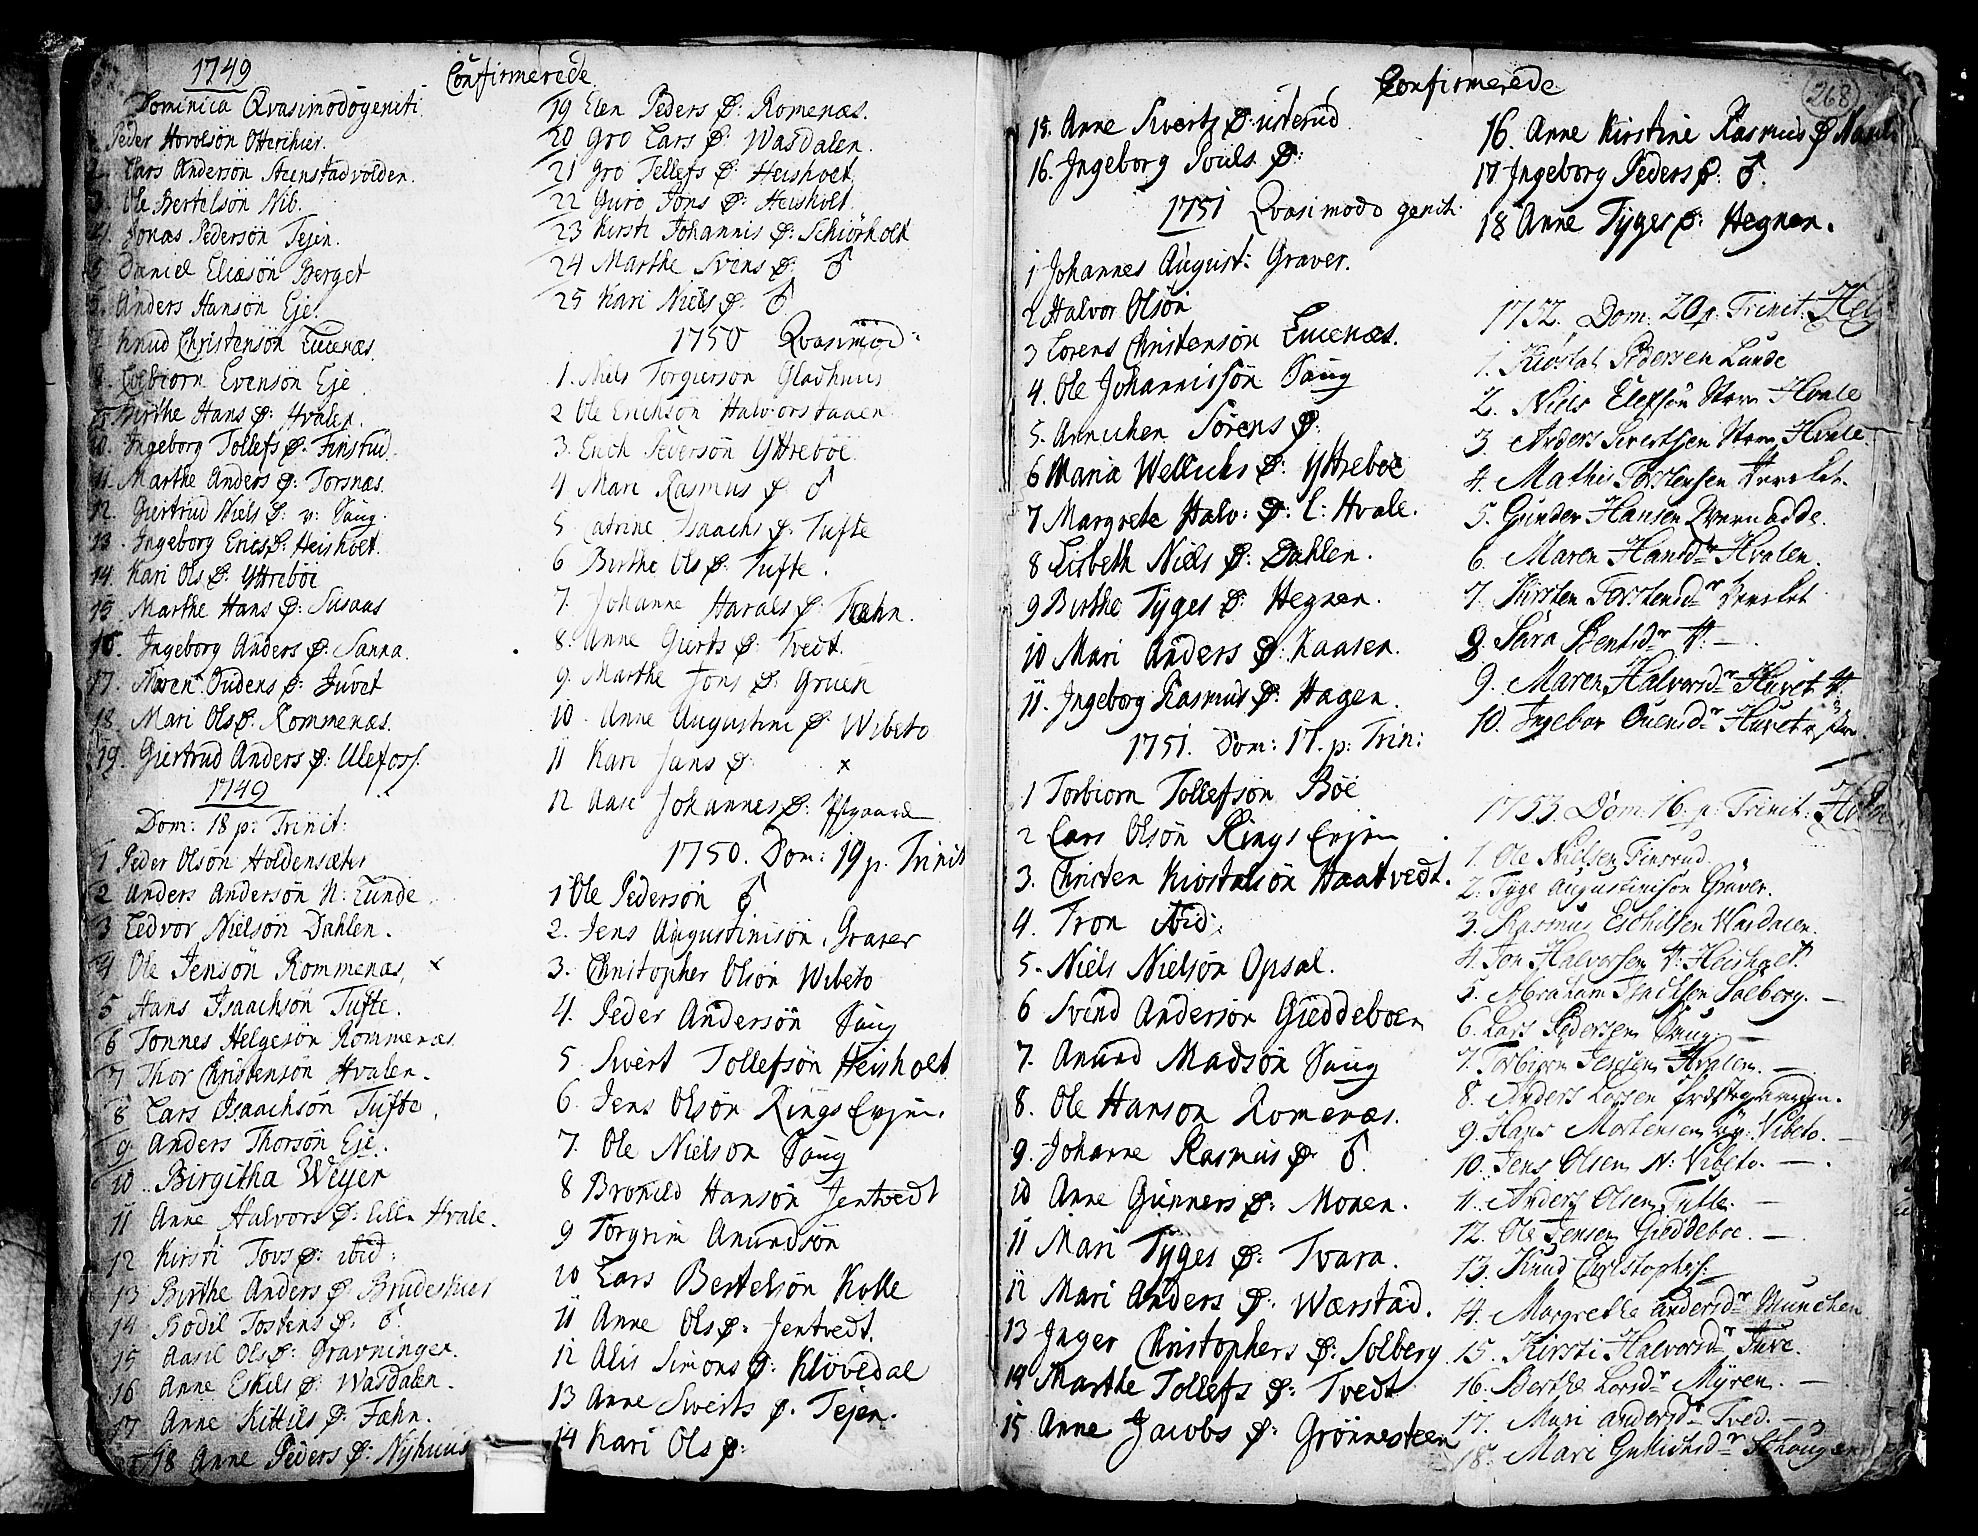 Confirmerede
1749
Dominica Qvasimodogeniti
Peder Hovolsön Otterihier.
2. Lars Andersön Steenstadvolden.
3. Ole Bertelsön Nib.
4. Jonas Pedersön Tejen.
5. Daniel Eliæsön Berget
Anders Hansön Eje.
Knud Christensön Euenæs.
Evensön Eje
Birthe Hans D: Hvalen.
10. Ingeborg Tollefs D: Finstrud.
11. Marthe Anders D: Torsnæs.
12. Giertrud Niels D: v: Saug.
13. Ingeborg Erics D: Heisholt.
14. Kari Ols D: Yttreböe
15 Marthe Hans D: Susaas
16. Ingeborg Anders D: Sanna.
17. Maren Oudens D: Juvet
18. Mari Ols D: Rommenæs.
19. Giertrud Anders D: Ulefoss.
1749
Dom: 18 p: Trinit:
1 Peder Olsön Holdensæter
2 Anders Andersön N: Lunde
3 Ledvor Nielsön Dahlen.
4 Ole Jensön Rommenæs, x
5 Hans Isaachsön Tufte.
6 Tonnes Helgesön Rommenæs.
7 Thor Christensön Hvalen.
8 Lars Isaachsön Tufte.
9 Anders Thorsön Eje.
10 Birgitha Weyer
11 Anne Halvors D: Lille Hvale.
12 Kirsti Tovs D: ibid:
13 Birthe Anders D: Brudeskier
14 Bodil Tostens D: ♂.
15 Aasil Ols D: Gravninger.
16 Anne Eskils D: Wasdalen.
17 Anne Kittils D: Fæhn.
18 Anne Peders D: Nyhuus
19 Elen Peders D: Romenæs.
20 Gro Lars D: Wasdalen.
21 Gro Tellefs D: Heisholt
22 Guro Jons D: Heisholt
23 Kirsti Johannis D: Schiörholt
24 Marthe Svens D: ♂
25 Kari Niels D: ♂
1750 Qvasimod:
1. Niels Torgiersön Gladhuus
2 Ole Erichsön Halvorstaaen
3. Erich Pedersön Yttreböe.
4 Mari Rasmus D: ♂
5 Catrine Isaachs D: Tufte
6 Birthe Ols D: Tufte.
7. Johanne Haralds D: Fæhn.
8. Anne Gierts D: Tvedt.
9. Marthe Jons D: Gruen
10. Anne Augustini D: Wibeto
11 Kari Jans D: x
12 Aase Johannes D:
1750. Dom: 19 p. Trinit
1 Ole Pedersön ♂
2. Jens Augustinisön, Graver
3. Christopher Olsön Wibeto
4. Peder Andersön Saug
5 Sivert Tollefsön Heisholt
6. Jens Olsön Rings Evjen.
7. Ole Nielson Saug
8 Bronild Hansön Jentvedt
9 Torgrim Anundsön
10 Lars Bertelsön Kolle
11 Anne Ols D: Jentvedt.
12 Alis Simons D: Klövedal
13 Anne Siverts D. Tejen.
14 Kari Ols D:
Confirmerede
268
15. Anne Siverts D: Usterud
16. Ingeborg Pouls D:
1751 Qvasimodo genit:
1 Johannes August: Graver.
2 Halvor Olsön
3 Lorens Christensön Euenæs.
4. Ole Johannissön Saug
5. Annichen Sörens D:
6 Maria Wellichs D: Yttreböe
7 Margrete Halv: D: L: Hvale.
8 Lisbeth Niels D: Dahlen.
9 Birthe Tyges D: Hegnen.
10 Mari Anders D: Kaasen.
11. Ingeborg Rasmus D: Hagen.
1751. Dom: 17. p: Trin:
1 Torbiorn Tollefsön Böe
2 Lars Olsön Rings Evjen
3. Christen Kiostolsön Haatvedt.
4. Tron ibid:
5. Niels Nielsön Opsal.
6 Svend Andersön Gieddeboen
7. Anund Madsön Saug
8. Ole Hanson Romenæs.
9. Johanne Rasmus D: ♂.
10 Anne Gunners D: Monen.
11 Mari Tyges D: Tvara.
12 Mari Anders D: Wærstad.
13 Inger Christophers D: Solberg
14 Marthe Tollefs D: Tvedt
15 Anne Jacobs D: Grönnesteen
16. Anne Kirstine Rasmus D
17 Ingeborg Peders D: ♂.
18 Anne Tyges D: Hegnen.
1752. Dom: 20 p: Trinit:
1. Kiostel Pedersen Lunde
2. Niels Elefsön Hvale
3. Anders Sivertsen Hvale
4. Mathis Torstensen
5. Gunder Hansen
6. Maren Hansdr Hvalen.
7. Kirsten Torstensdr
8. Sara Bentsdr
9. Maren Halvorsdr Huvet
10. Ingebor Ouensdr Huvet
1753. Dom: 16. p: Trinit:
1. Ole Nielsen Finsrud
2. Tyge Augustinisön Graver.
3. Rasmus Eschilsen Wasdalen.
4. Jon Halvorsen Heisholt
5. Abraham Isachsen Solberg. -
6. Lars Pedersen Saug. -
7. Torbiörn Jensen Hvalen. -
8. Anders Larsen
9. Hans Mortensen Vibeto. -
10. Jens Olsen N: Vibeto. -
11. Anders Olsen Tufte. -
12. Ole Jensen Gieddeboe. -
13. Knud Christophers. -
14. Margrethe Andersdr München
15. Kirsti Halvorsdr Juve.
16. Berthe Larsdr Myren. -
17. Mari Andersdr Tved. -
18. Mari Gullichsdr Schougen